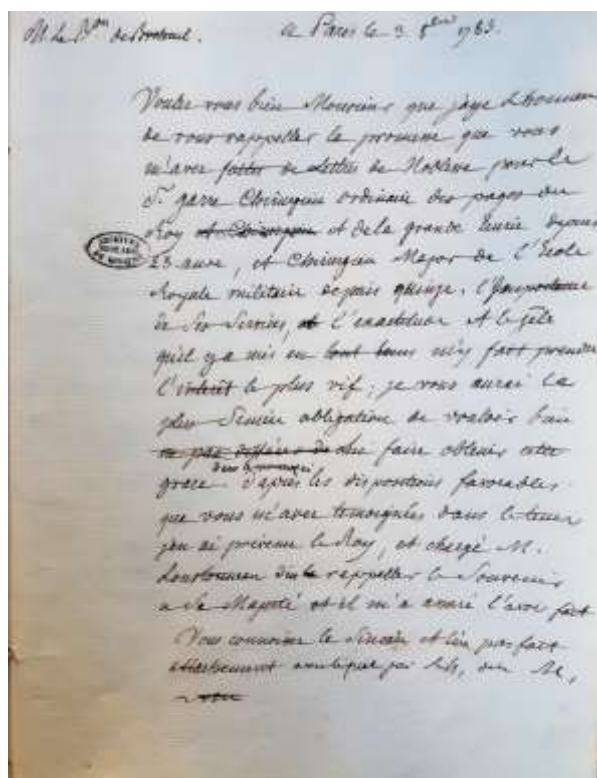 M. Le B.on de Breteuil.
a Paris le 3. 8bre 1783.
Voulez vous bien Monsieur que j'aye l'honneur
de vous rappeller la promesse que vous
m'avez faites de Lettres de Noblesse pour le
S. garre Chirurgien ordinaire des pages du
Roy et Chirurgien et de la grande Ecurie depuis
23 ans, et Chirurgien Major de l'Ecole
Royale militaire depuis quinze. l'Importance
de Ses Services, et l'exactitude et le zèle
qu'il y a mis en tout tems m'y fait prendre
l'interêt le plus vif; je vous aurai la
plus Sincere obligation de vouloir bien
ne pas differer de lui faire obtenir cette
grace. d'après les dispositions favorables
que vous m'avez temoignées dans le tems
j'en ai prévenu le Roy, et chargé M.
Loustonneau de rappeller le Souvenir
a Sa Majesté et il m'a assuré l'avoir fait
Vous connoissez le Sincere et bien parfait
attachement avec lequel je suis, M,